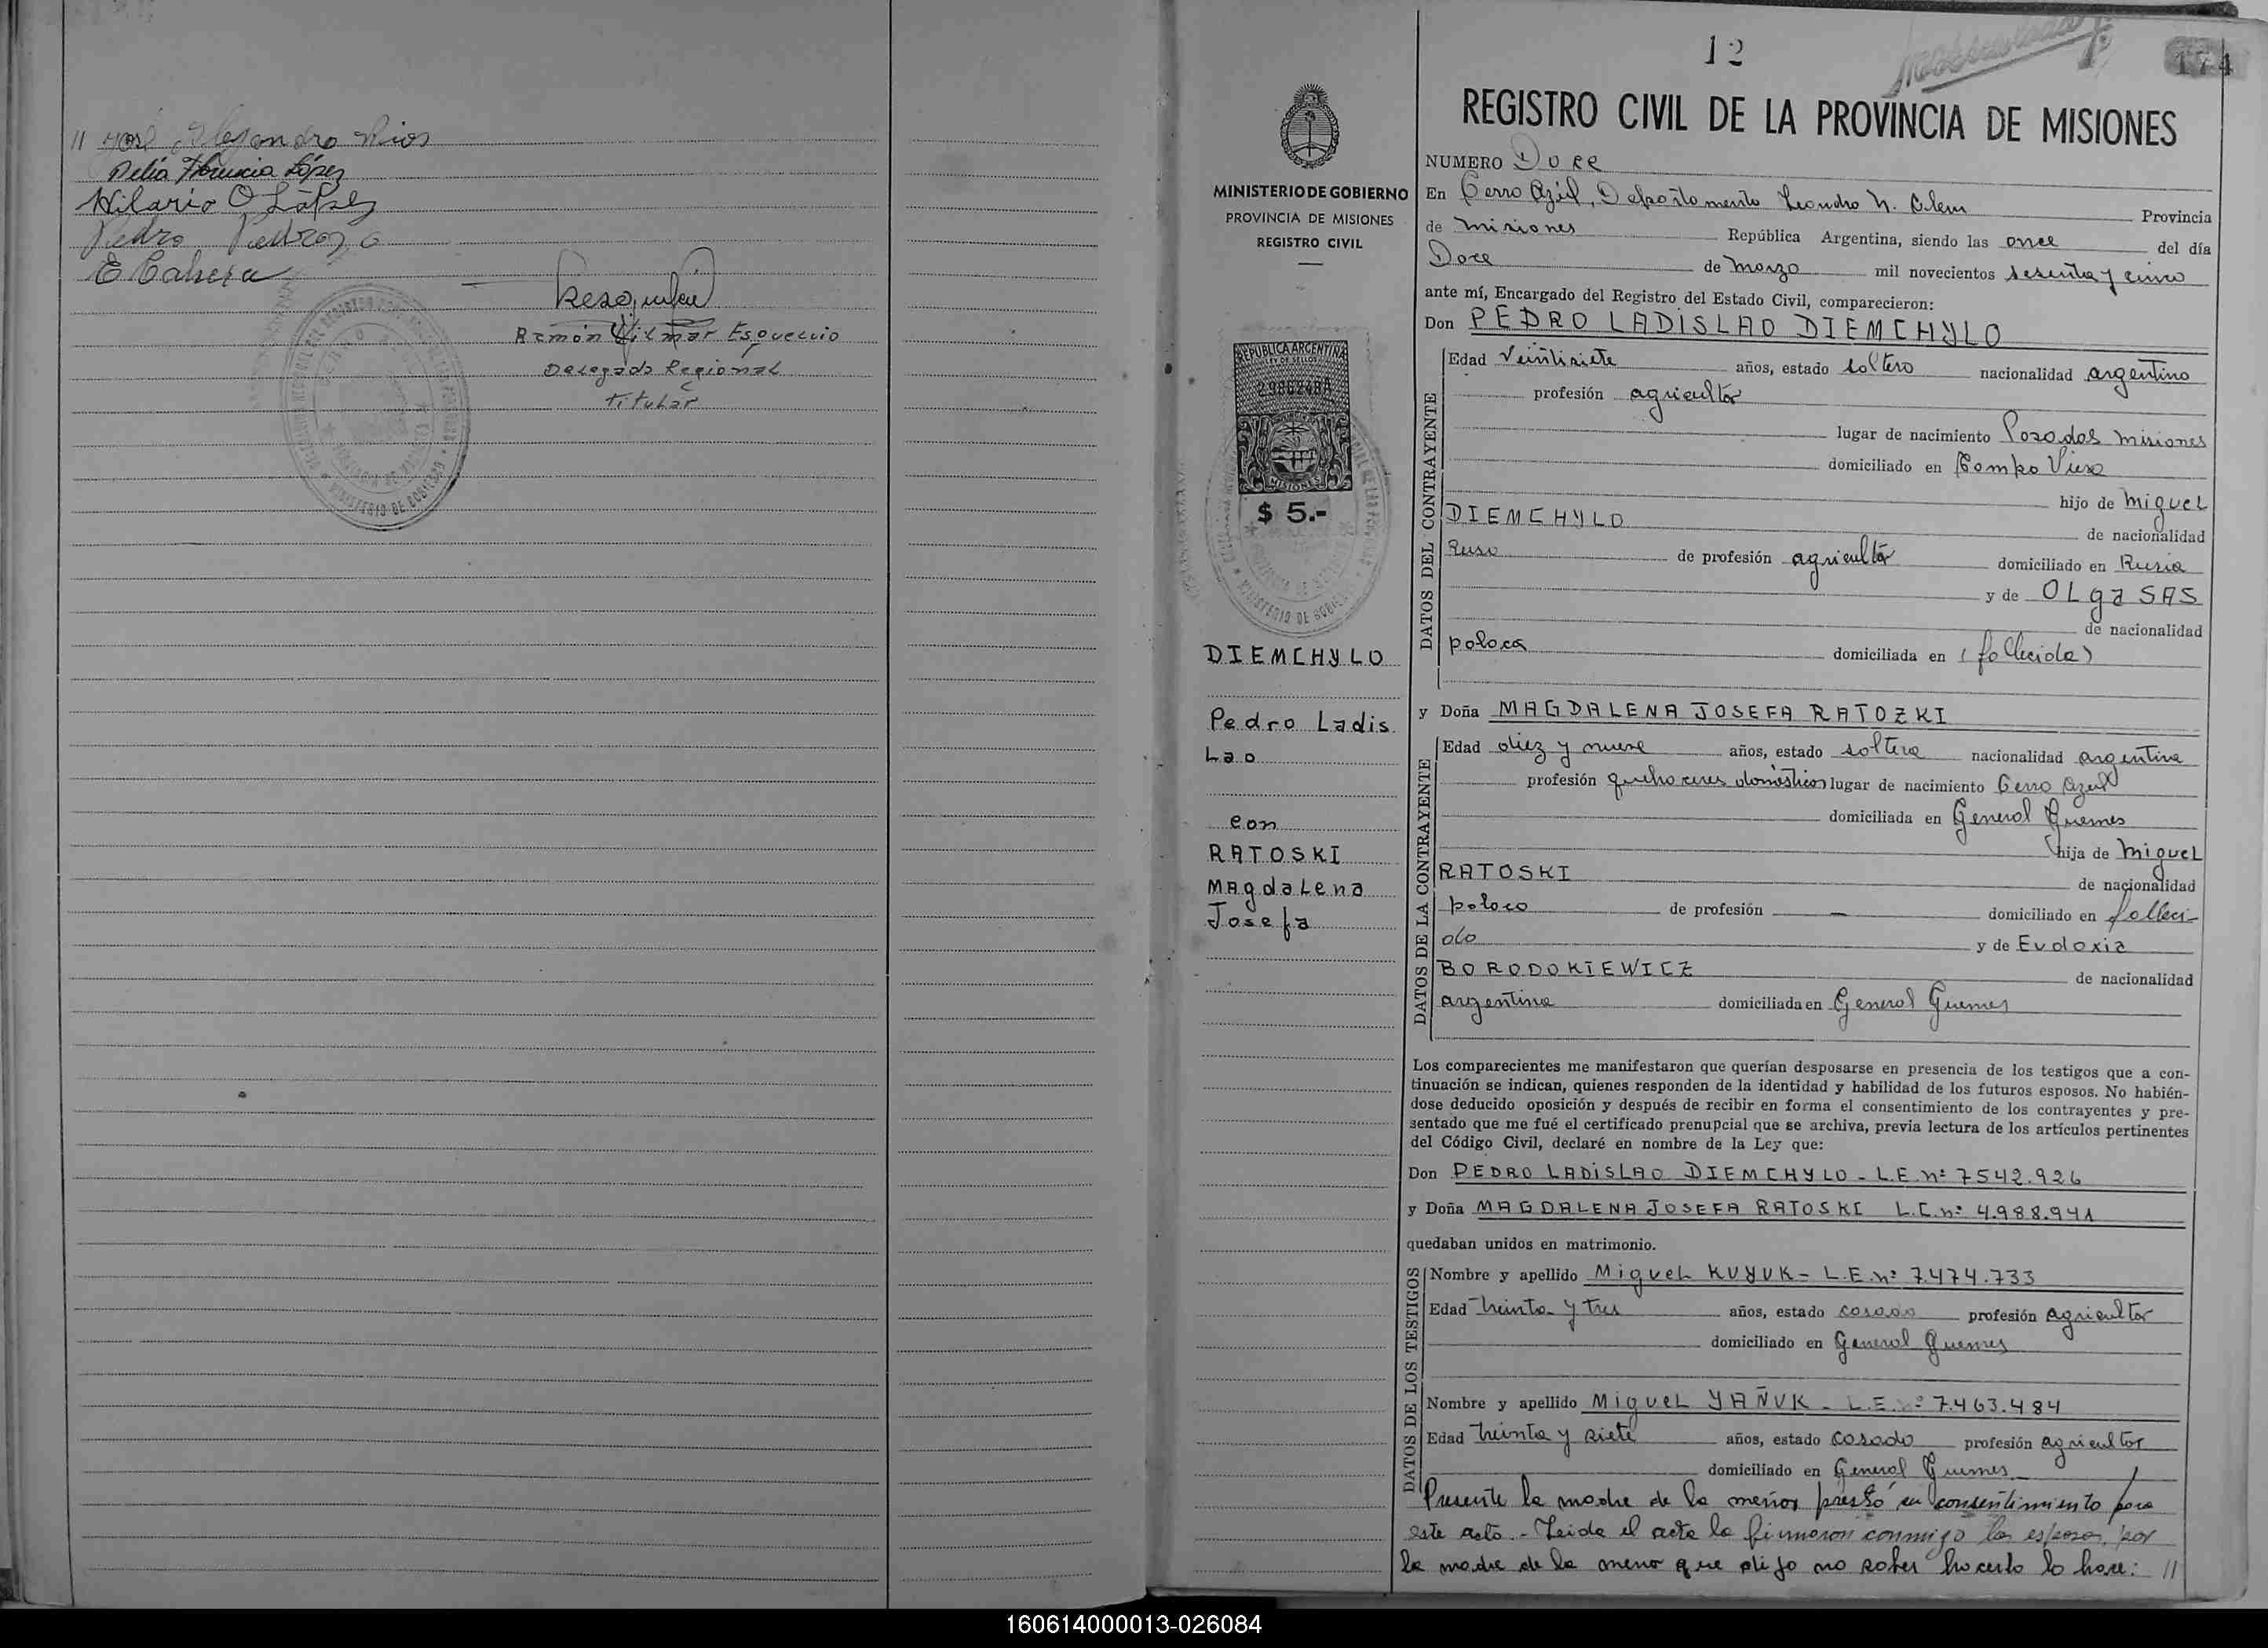 // José Alejandro Rios
Delia Florencia López
Hilario O López
Pedro Pedrozo
E Cabrera
Ramón Wilmar Esquercio
Delegado Regional
Titular
12
174
REGISTRO CIVIL DE LA PROVINCIA DE MISIONES
MINISTERIO DE GOBIERNO
PROVINCIA DE MISIONES
REGISTRO CIVIL
REPUBLICA ARGENTINA
LEY DE SELLOS
MISIONES
$ 5.-
DIEMCHYLO
Pedro Ladis
Lao
con
RATOSKI
Magdalena
Josefa
NUMERO Doce
En Cerro Azul, Departamento Leandro N. Alem Provincia
de Misiones República Argentina, siendo las once del día
Doce de Marzo mil novecientos sesenta y cinco
ante mí, Encargado del Registro del Estado Civil, comparecieron:
Don PEDRO LADISLAO DIEMCHYLO
DATOS DEL CONTRAYENTE
Edad Veintisiete años, estado soltero nacionalidad argentino
profesión agricultor
lugar de nacimiento Posadas Misiones
domiciliado en Campo Viera
hijo de Miguel
DIEMCHYLO de nacionalidad
Ruso de profesión agricultor domiciliado en Rusia
y de OLga SAS
de nacionalidad
polaca domiciliada en (fallecida)
y Doña MAGDALENA JOSEFA RATOZKI
DATOS DE LA CONTRAYENTE
Edad diez y nueve años, estado soltera nacionalidad argentina
profesión quehaceres domésticos lugar de nacimiento Cerro Azul
domiciliada en General Guemes
hija de Miguel
RATOSKI de nacionalidad
polaco de profesión — domiciliado en falleci-
do y de Eudoxia
BORODOKIEWICZ de nacionalidad
argentina domiciliada en General Guemes
Los comparecientes me manifestaron que querían desposarse en presencia de los testigos que a con-
tinuación se indican, quienes responden de la identidad y habilidad de los futuros esposos. No habién-
dose deducido oposición y después de recibir en forma el consentimiento de los contrayentes y pre-
sentado que me fué el certificado prenupcial que se archiva, previa lectura de los artículos pertinentes
del Código Civil, declaré en nombre de la Ley que:
Don PEDRO LADISLAO DIEMCHYLO - L.E. nº 7542.926
y Doña MAGDALENA JOSEFA RATOSKI L.C. nº 4.988.941
quedaban unidos en matrimonio.
DATOS DE LOS TESTIGOS
Nombre y apellido Miguel KUYUK - L.E. nº 7.474.733
Edad treinta y tres años, estado casado profesión agricultor
domiciliado en General Guemes
Nombre y apellido Miguel YAÑUK - L.E. nº 7.463.484
Edad treinta y siete años, estado casado profesión agricultor
domiciliado en General Guemes
Presente la madre de la menor prestó su consentimiento para
este acto. - Leida el acta la firmaron conmigo los esposos, por
la madre de la menor que dijo no saber hacerlo lo hace: //
160614000013-026084